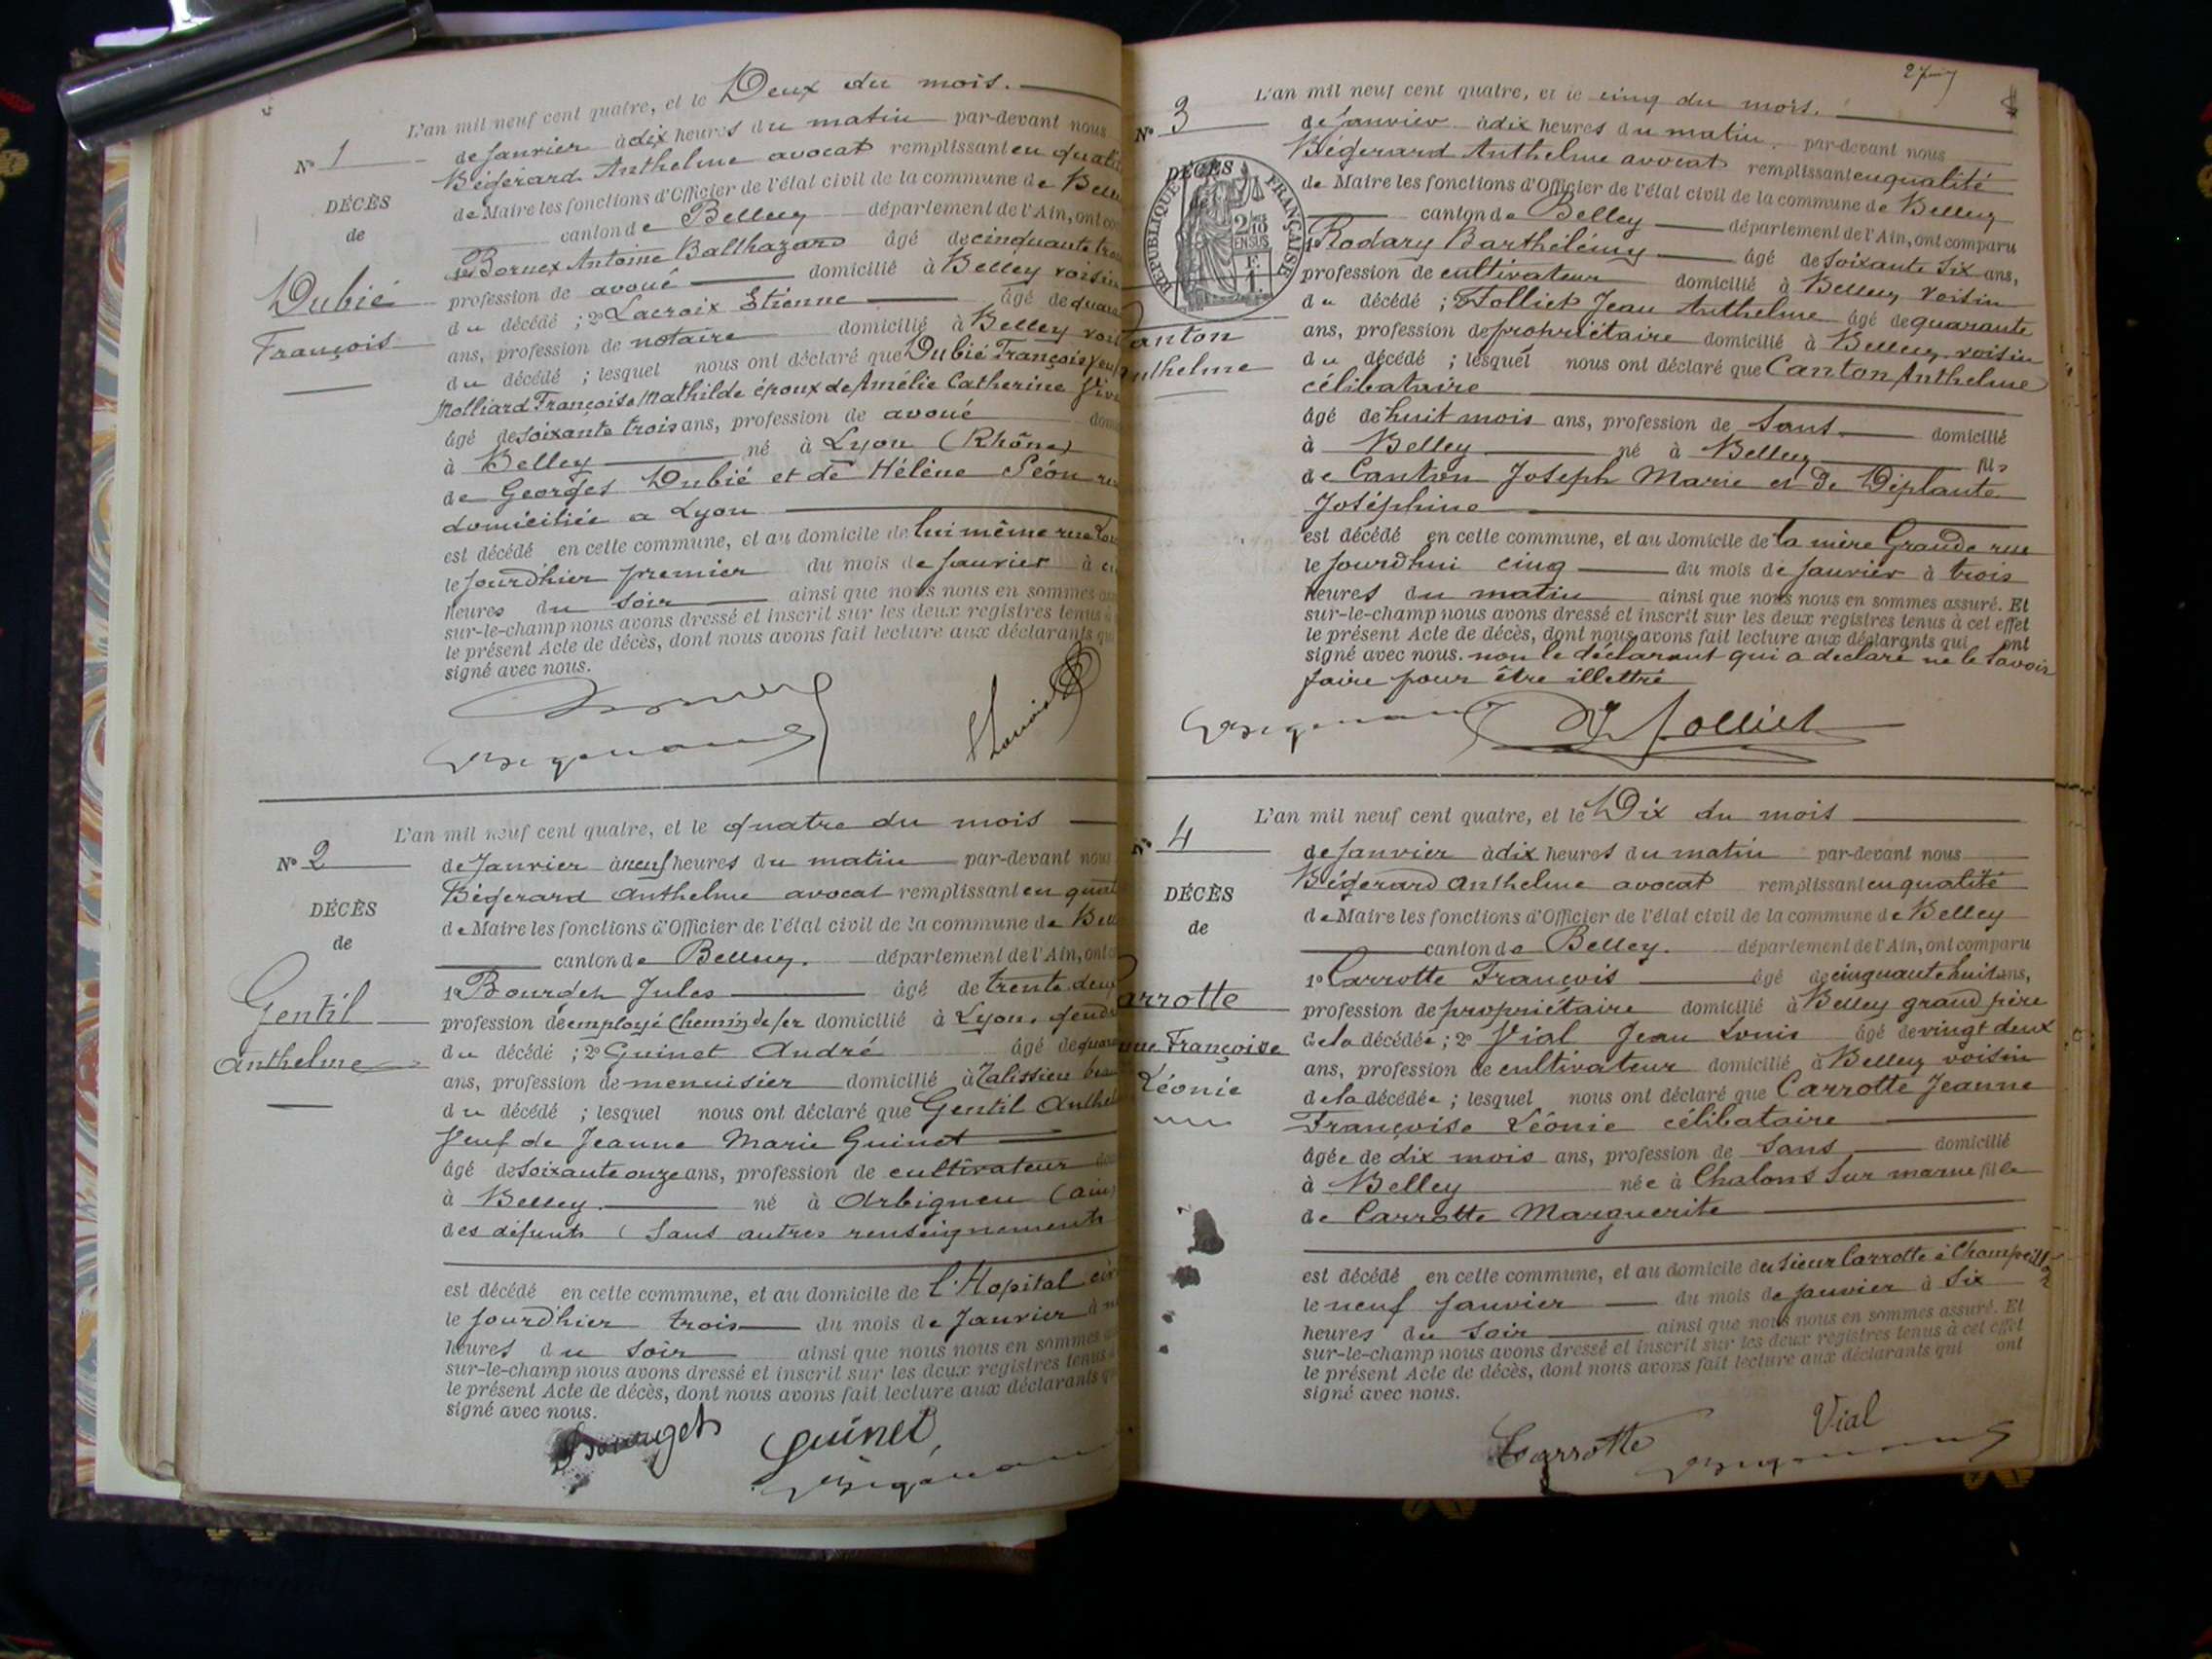 L'an mil neuf cent quatre, et le Deux du mois.
N° 1
de Janvier à dix heures du matin par-devant nous
Bégérard Anthelme avocat remplissant en
DÉCÈS
de Maire les fonctions d'Officier de l'état civil de la commune de
de
canton de Belley département de l'Ain,
1° Bornex Antoine Balthazard âgé de cinquante
Dubié
profession de avoué domicilié à Belley voisin
du décédé ; 2° Lacroix Etienne âgé de
François
ans, profession de notaire domicilié à Belley
du décédé ; lesquel nous ont déclaré que Dubié François
Molliard Françoise Mathilde époux de Amélie Catherine
âgé de soixante trois ans, profession de avoué
à Belley né à Lyon (Rhône)
de Georges Dubié et de Hélène Séon
domiciliée a Lyon
est décédé en cette commune, et au domicile de lui même rue
le jourd'hier premier du mois de Janvier à
heures du soir ainsi que nous nous en sommes
sur-le-champ nous avons dressé et inscrit sur les deux registres tenus
le présent Acte de décès, dont nous avons fait lecture aux déclarants
signé avec nous.
L'an mil neuf cent quatre, et le quatre du mois
N° 2
de Janvier à neuf heures du matin par-devant nous
Bégerard Anthelme avocat remplissant en
DÉCÈS
de Maire les fonctions d'Officier de l'état civil de la commune de
de
canton de Belley. département de l'Ain, ont
1° Jules âgé de trente deux
Gentil
profession de employé Chemin de fer domicilié à Lyon.
Anthelme
du décédé ; 2° Guinet André âgé de
ans, profession de menuisier domicilié à Talissieu
du décédé ; lesquel nous ont déclaré que Gentil
Veuf de Jeanne Marie Guinet
âgé de soixante onze ans, profession de cultivateur
à Belley. né à Arbignieu (ain)
des défunts (Sans autres renseignements
est décédé en cette commune, et au domicile de l'Hopital
le jourd'hier trois du mois de Janvier à
heures du soir ainsi que nous nous en sommes
sur-le-champ nous avons dressé et inscrit sur les deux registres tenus
le présent Acte de décès, dont nous avons fait lecture aux déclarants
signé avec nous.
Guinet
L'an mil neuf cent quatre, et le cinq du mois.
N° 3
de Janvier à dix heures du matin. par-devant nous
Bégerard Anthelme avocat remplissant en qualité
DÉCÈS
de Maire les fonctions d'Officier de l'état civil de la commune de Belley
RÉPUBLIQUE FRANÇAISE
2/10 EN SUS
canton de Belley département de l'Ain, ont comparu
1° Rodary Barthélémy âgé de soixante six ans,
profession de cultivateur domicilié à Belley voisin
du décédé ; 2° Folliet Jean Anthelme âgé de quarante
anton
ans, profession de propriétaire domicilié à Belley voisin
nthelme
du décédé ; lesquel nous ont déclaré que Canton Anthelme
célibataire
âgé de huit mois ans, profession de sans domicilié
à Belley né à Belley fils
de Canton Joseph Marie et de Déplante
Joséphine
est décédé en cette commune, et au domicile de la mère Grande rue
le jourdhui cinq du mois de Janvier à trois
heures du matin ainsi que nous nous en sommes assuré. Et
sur-le-champ nous avons dressé et inscrit sur les deux registres tenus à cet effet
le présent Acte de décès, dont nous avons fait lecture aux déclarants qui ont
signé avec nous. non le déclarant qui a déclaré ne le savoir
faire pour être illettré
Folliet
L'an mil neuf cent quatre, et le Dix du mois
N° 4
de Janvier à dix heures du matin par-devant nous
Bégerard Anthelme avocat remplissant en qualité
DÉCÈS
de Maire les fonctions d'Officier de l'état civil de la commune de Belley
de
canton de Belley. département de l'Ain, ont comparu
1° Carrotte François âgé de cinquante huit ans,
arrotte
profession de propriétaire domicilié à Belley grand père
nne Françoise
de la décédée ; 2° Vial Jean Louis âgé de vingt deux
ans, profession de cultivateur domicilié à Belley voisin
Léonie
de la décédée ; lesquel nous ont déclaré que Carrotte Jeanne
Françoise Léonie célibataire
âgée de dix mois ans, profession de sans domicilié
à Belley née à Chalons sur marne fille
de Carrotte Marguerite
est décédé en cette commune, et au domicile du sieur Carrotte à
le neuf Janvier du mois de Janvier à six
heures du soir ainsi que nous nous en sommes assuré. Et
sur-le-champ nous avons dressé et inscrit sur les deux registres tenus à cet effet
le présent Acte de décès, dont nous avons fait lecture aux déclarants qui ont
signé avec nous.
Vial
Carrotte